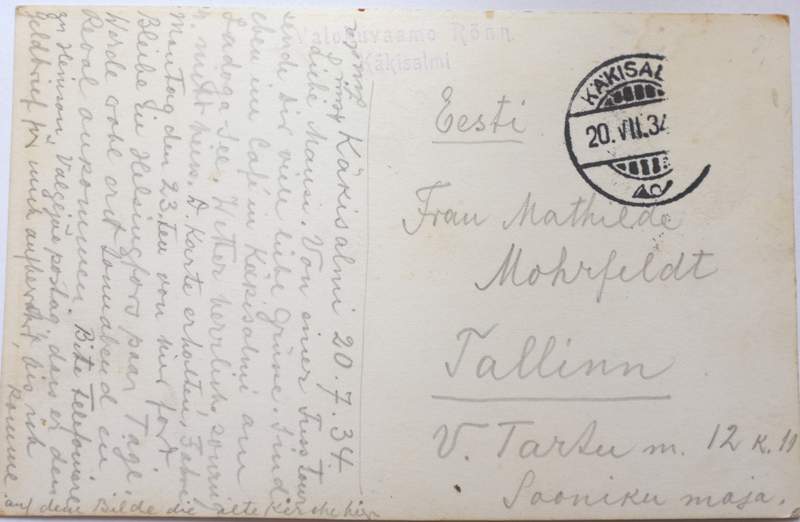 Valokuvaamo Rönn
Käkisalmi
KÄKISAL
20.VII.34
Eesti
Frau Mathilde
Mohrfeldt
Tallinn
V. Tartu m. 12 K. 11
Sooniku maja.
Käkisalmi 20.7.34.
Liebe Mausi. Von einer Fuss tour
sende dir viele liebe Grüsse. Sind
eben im Café in Käkisalmi am
Ladoga See. Wetter herrlich, sonnig
u. nicht heiss. D. Karte erhalten. Fahre
Montag den 23.ten von hier fort.
Bleibe in Helsingfors paar Tage.
Werde wohl erst Sonnabend in
Reval ankommen. Bitte telefoniere
zu Heinson, Valgejõe postag. dass er den
Geldbrief für mich aufbewahrt bis ich
komme.
auf dem Bilde die alte Kirche hier